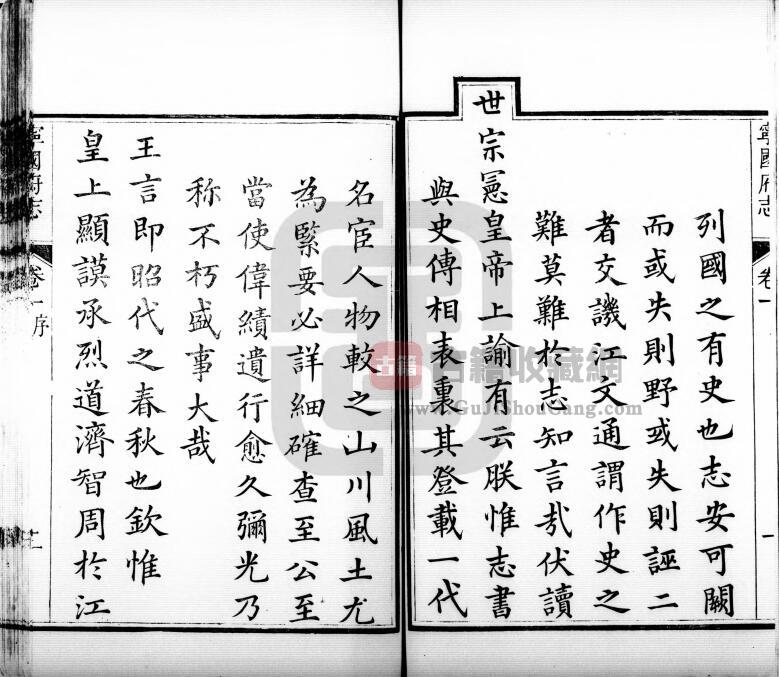 寧國府志
卷一
一
列國之有史也志安可闕
而或失則野或失則誣二
者交譏江文通謂作史之
難莫難於志知言哉伏讀
世宗憲皇帝上諭有云朕惟志書
與史傳相表裏其登載一代
名宦人物較之山川風土尤
為緊要必詳細確查至公至
當使偉績遺行愈久彌光乃
称不朽盛事大哉
王言即昭代之春秋也欽惟
皇上顯謨承烈道濟智周於江
寧國府志
卷一序
古籍
古籍收藏網
www.GuJiShouCang.com